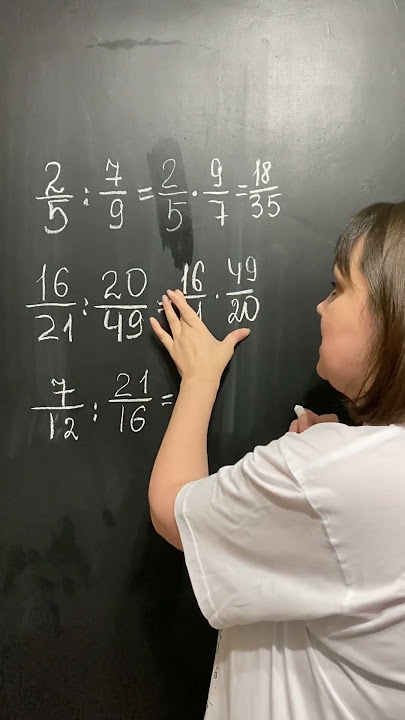 2/5 : 7/9 = 2/5 · 9/7 = 18/35
16/21 : 20/49 = 16/ 1 · 49/20
7/12 : 21/16 =